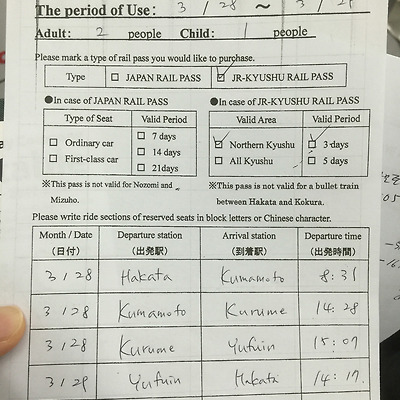 The period of Use: 3 / 28 ~ 3 / 29
Adult: 2 people Child: 1 people
Please mark a type of rail pass you would like to purchase.
Type □ JAPAN RAIL PASS ☑ JR-KYUSHU RAIL PASS
●In case of JAPAN RAIL PASS ●In case of JR-KYUSHU RAIL PASS
Type of Seat Valid Period Valid Area Valid Period
□ Ordinary car □ 7 days ☑ Northern Kyushu ☑ 3 days
□ First-class car □ 14 days □ All Kyushu □ 5 days
□ 21days
※This pass is not valid for Nozomi and ※This pass is not valid for a bullet train
Mizuho. between Hakata and Kokura.
Please write ride sections of reserved seats in block letters or Chinese character.
Month / Date Departure station Arrival station Departure time
(日付) (出発駅) (到着駅) (出発時間)
3 / 28 Hakata Kumamoto 8:31
3 / 28 Kumamoto Kurume 14:28
3 / 28 Kurume Yufuin 15:07
3 / 29 Yufuin Hakata 14:17.